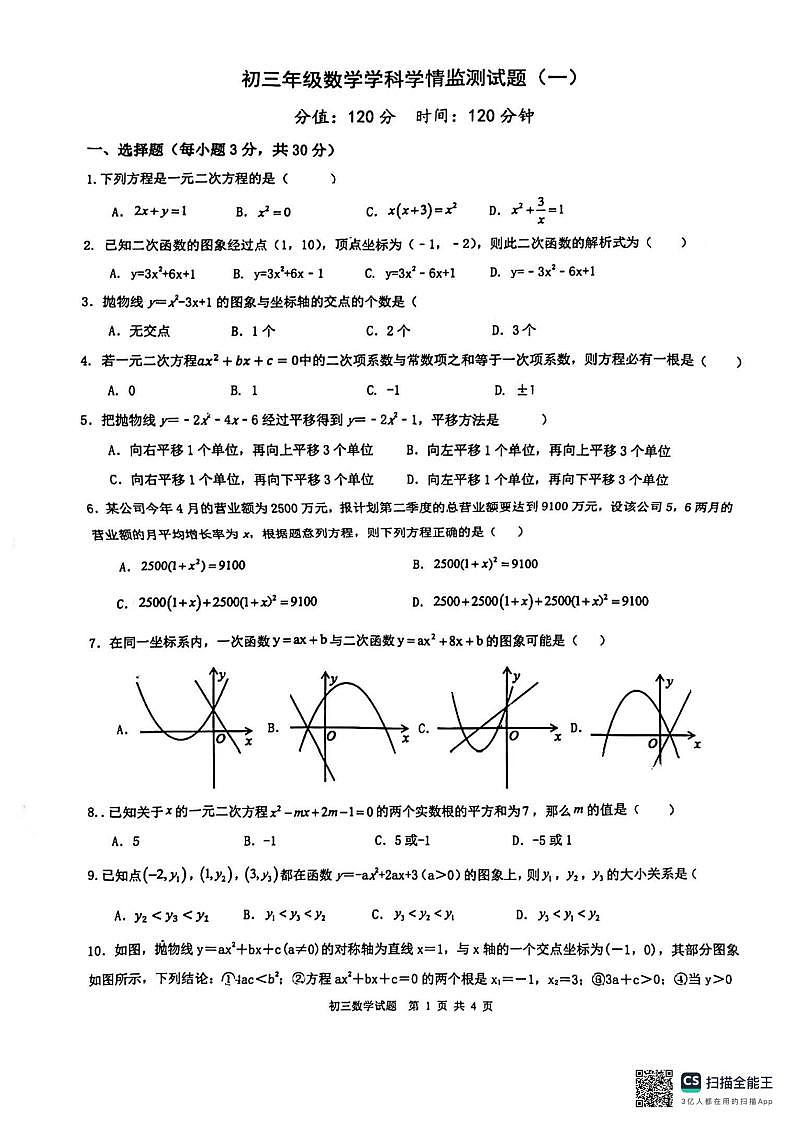 初三年级数学学科学情监测试题（一）
分值：120分　时间：120分钟
一、选择题（每小题3分，共30分）
1.下列方程是一元二次方程的是（　　）
A. 2x+y=1　B. x²=0　C. x(x+3)=x²　D. x²+3/x=1
2. 已知二次函数的图象经过点（1，10），顶点坐标为（﹣1，﹣2），则此二次函数的解析式为（　　）
A. y=3x²+6x+1　B. y=3x²+6x﹣1　C. y=3x²﹣6x+1　D. y=﹣3x²﹣6x+1
3. 抛物线 y=x²-3x+1 的图象与坐标轴的交点的个数是（
A. 无交点　B. 1个　C. 2个　D. 3个
4. 若一元二次方程ax²+bx+c=0中的二次项系数与常数项之和等于一次项系数，则方程必有一根是（　　）
A. 0　B. 1　C. -1　D. ±1
5. 把抛物线 y=﹣2x²﹣4x﹣6 经过平移得到 y=﹣2x²﹣1，平移方法是　　）
A. 向右平移1个单位，再向上平移3个单位　B. 向左平移1个单位，再向上平移3个单位
C. 向右平移1个单位，再向下平移3个单位　D. 向左平移1个单位，再向下平移3个单位
6. 某公司今年4月的营业额为2500万元，报计划第二季度的总营业额要达到9100万元，设该公司5，6两月的
营业额的月平均增长率为x，根据题意列方程，则下列方程正确的是（　　）
A. 2500(1+x²)=9100　B. 2500(1+x)²=9100
C. 2500(1+x)+2500(1+x)²=9100　D. 2500+2500(1+x)+2500(1+x)²=9100
7. 在同一坐标系内，一次函数y=ax+b与二次函数y=ax²+8x+b的图象可能是（　　）
y　y　y　y
A.　B.　C.　D.
O　x　O　x　O　x　O　x
8. . 已知关于x的一元二次方程x²-mx+2m-1=0的两个实数根的平方和为7，那么m的值是（　　）
A. 5　B. -1　C. 5或-1　D. -5或1
9. 已知点(-2,y₁)，(1,y₂)，(3,y₃)都在函数 y=-ax²+2ax+3（a>0）的图象上，则y₁，y₂，y₃的大小关系是（
A. y₂<y₃<y₁　B. y₁<y₃<y₂　C. y₃<y₂<y₁　D. y₃<y₁<y₂
10. 如图，抛物线 y=ax²+bx+c(a≠0)的对称轴为直线 x=1，与x轴的一个交点坐标为(-1，0)，其部分图象
如图所示，下列结论：①4ac<b²；②方程 ax²+bx+c=0 的两个根是 x₁=-1，x₂=3；③3a+c>0；④当 y>0
初三数学试题　第 1 页 共 4 页
CS 扫描全能王
3亿人都在用的扫描App